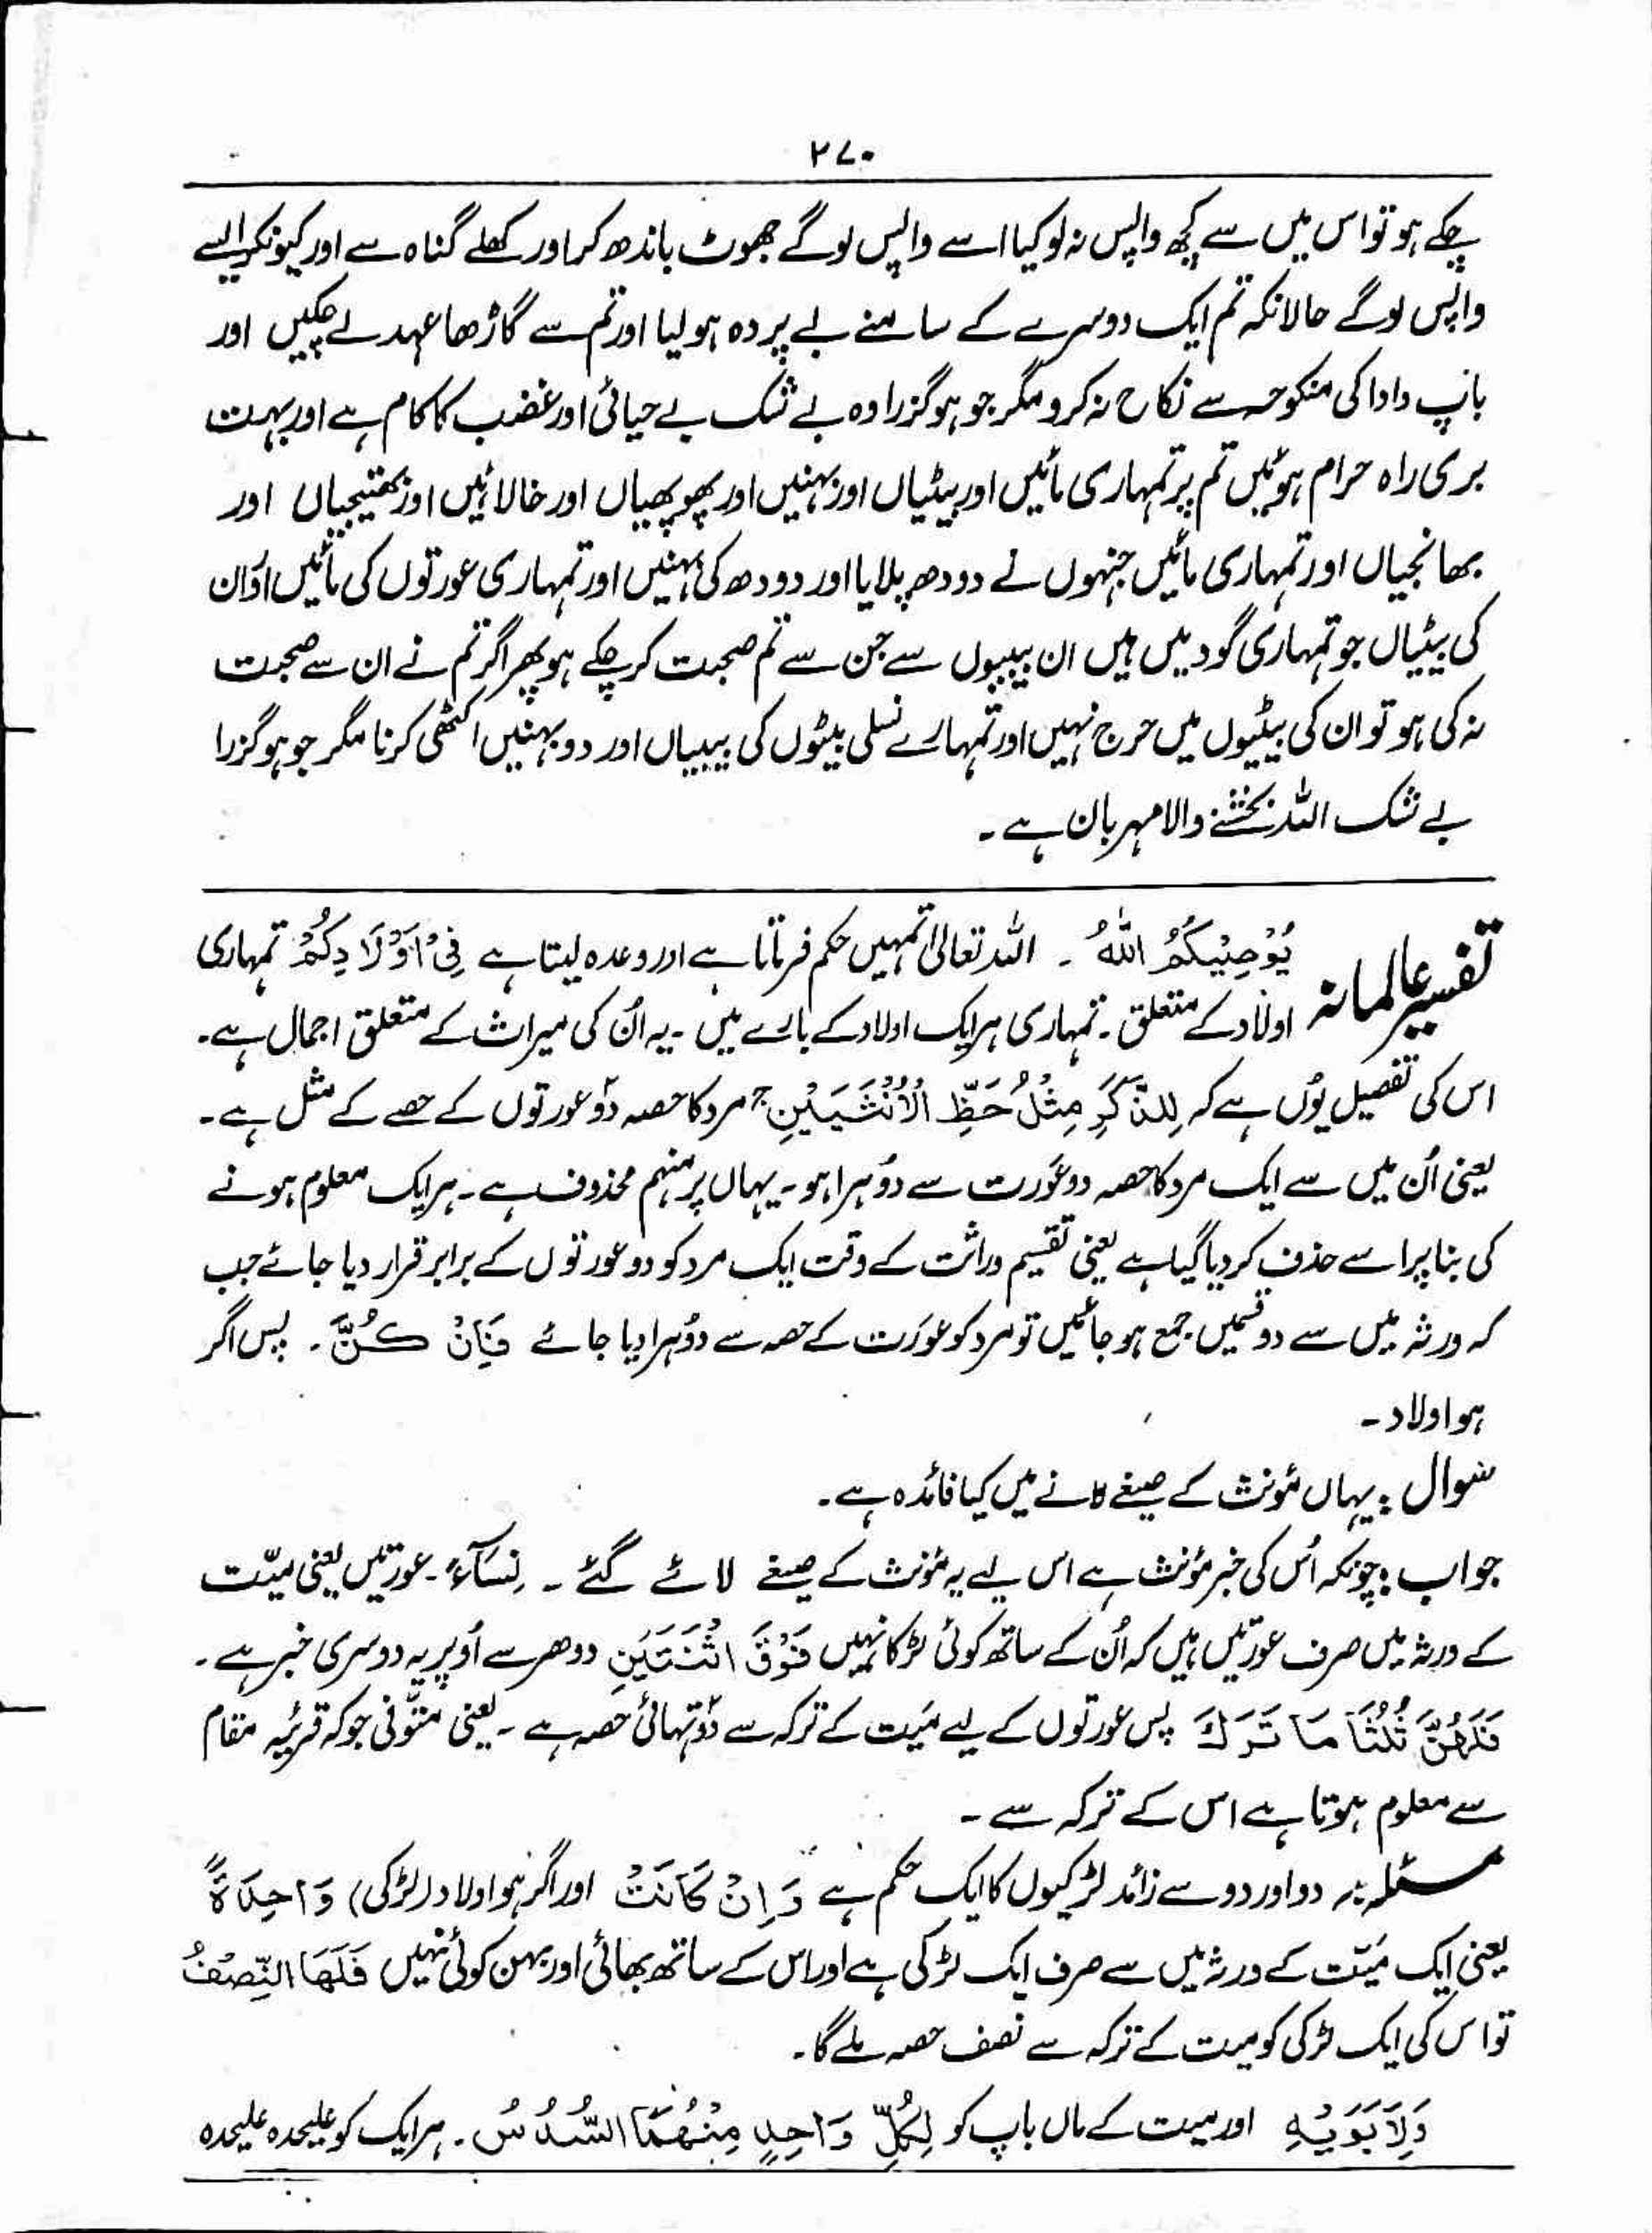 ۲۷۰
چکے ہو تو اس میں سے کچھ واپس نہ لو کیا اسے واپس لوگے جھوٹ باندھ کر اور کھلے گناہ سے اور کیونکر اسے
واپس لوگے حالانکہ تم ایک دوسرے کے سامنے بے پردہ ہولیا اور تم سے گاڑھا عہد لے چکیں اور
باپ دادا کی منکوحہ سے نکاح نہ کرو مگر جو ہو گزرا وہ بے شک بے حیائی اور غضب کا کام ہے اور بہت
بری راہ حرام ہوئیں تم پر تمہاری مائیں اور بیٹیاں اور بہنیں اور پھوپھیاں اور خالائیں اور بھتیجیاں اور
بھانجیاں اور تمہاری مائیں جنہوں نے دودھ پلایا اور دودھ کی بہنیں اور تمہاری عورتوں کی مائیں اور ان
کی بیٹیاں جو تمہاری گود میں ہیں ان بیبیوں سے جن سے تم صحبت کرچکے ہو پھر اگر تم نے ان سے صحبت
نہ کی ہو تو ان کی بیٹیوں میں حرج نہیں اور تمہارے نسلی بیٹوں کی بیبیاں اور دو بہنیں اکٹھی کرنا مگر جو ہو گزرا
بے شک اللہ بخشنے والا مہربان ہے ۔
تفسیر عالمانہ یُوْصِیْکُمُ اللّٰہُ ۔ اللہ تعالیٰ تمہیں حکم فرماتا ہے اور وعدہ لیتا ہے فِیْ اَوْلَادِکُمْ تمہاری
اولاد کے متعلق ۔ تمہاری ہر ایک اولاد کے بارے میں ۔ یہ اُن کی میراث کے متعلق اجمال ہے ۔
اس کی تفصیل یوں ہے کہ لِلذَّکَرِ مِثْلُ حَظِّ الْاُنْثَیَیْنِ ج مرد کا حصہ دو عورتوں کے حصے کے مثل ہے ۔
یعنی اُن میں سے ایک مرد کا حصہ دو عورت سے دوہرا ہو ۔ یہاں پر منہم محذوف ہے ۔ ہر ایک معلوم ہونے
کی بنا پر اسے حذف کردیا گیا ہے یعنی تقسیم وراثت کے وقت ایک مرد کو دو عورتوں کے برابر قرار دیا جائے جب
کہ ورثہ میں سے دو قسمیں جمع ہو جائیں تو مرد کو عورت کے حصہ سے دوہرا دیا جائے فَاِنْ کُنَّ ۔ پس اگر
ہو اولاد ۔
سوال : یہاں مؤنث کے صیغے لانے میں کیا فائدہ ہے ۔
جواب : چونکہ اُس کی خبر مؤنث ہے اس لیے یہ مؤنث کے صیغے لائے گئے ۔ نِسَآءً ۔ عورتیں یعنی میّت
کے ورثہ میں صرف عورتیں ہیں کہ اُن کے ساتھ کوئی لڑکا نہیں فَوْقَ اثْنَتَیْنِ دو دھر سے اُوپر یہ دوسری خبر ہے ۔
فَلَہُنَّ ثُلُثَا مَا تَرَکَ پس عورتوں کے لیے میّت کے ترکہ سے دو تہائی حصہ ہے ۔ یعنی متوّفی جو کہ قرینۂ مقام
سے معلوم ہوتا ہے اس کے ترکہ سے ۔
مسئلہ : دو اور دو سے زائد لڑکیوں کا ایک حکم ہے وَاِنْ کَانَتْ اور اگر ہو اولاد (لڑکی) وَاحِدَۃً
یعنی ایک میّت کے ورثہ میں سے صرف ایک لڑکی ہے اور اس کے ساتھ بھائی اور بہن کوئی نہیں فَلَہَا النِّصْفُ
تو اس کی ایک لڑکی کو میت کے ترکہ سے نصف حصہ ملے گا ۔
وَلِاَبَوَیْہِ اور میت کے ماں باپ کو لِکُلِّ وَاحِدٍ مِنْہُمَا السُّدُسُ ۔ ہر ایک کو علیحدہ علیحدہ